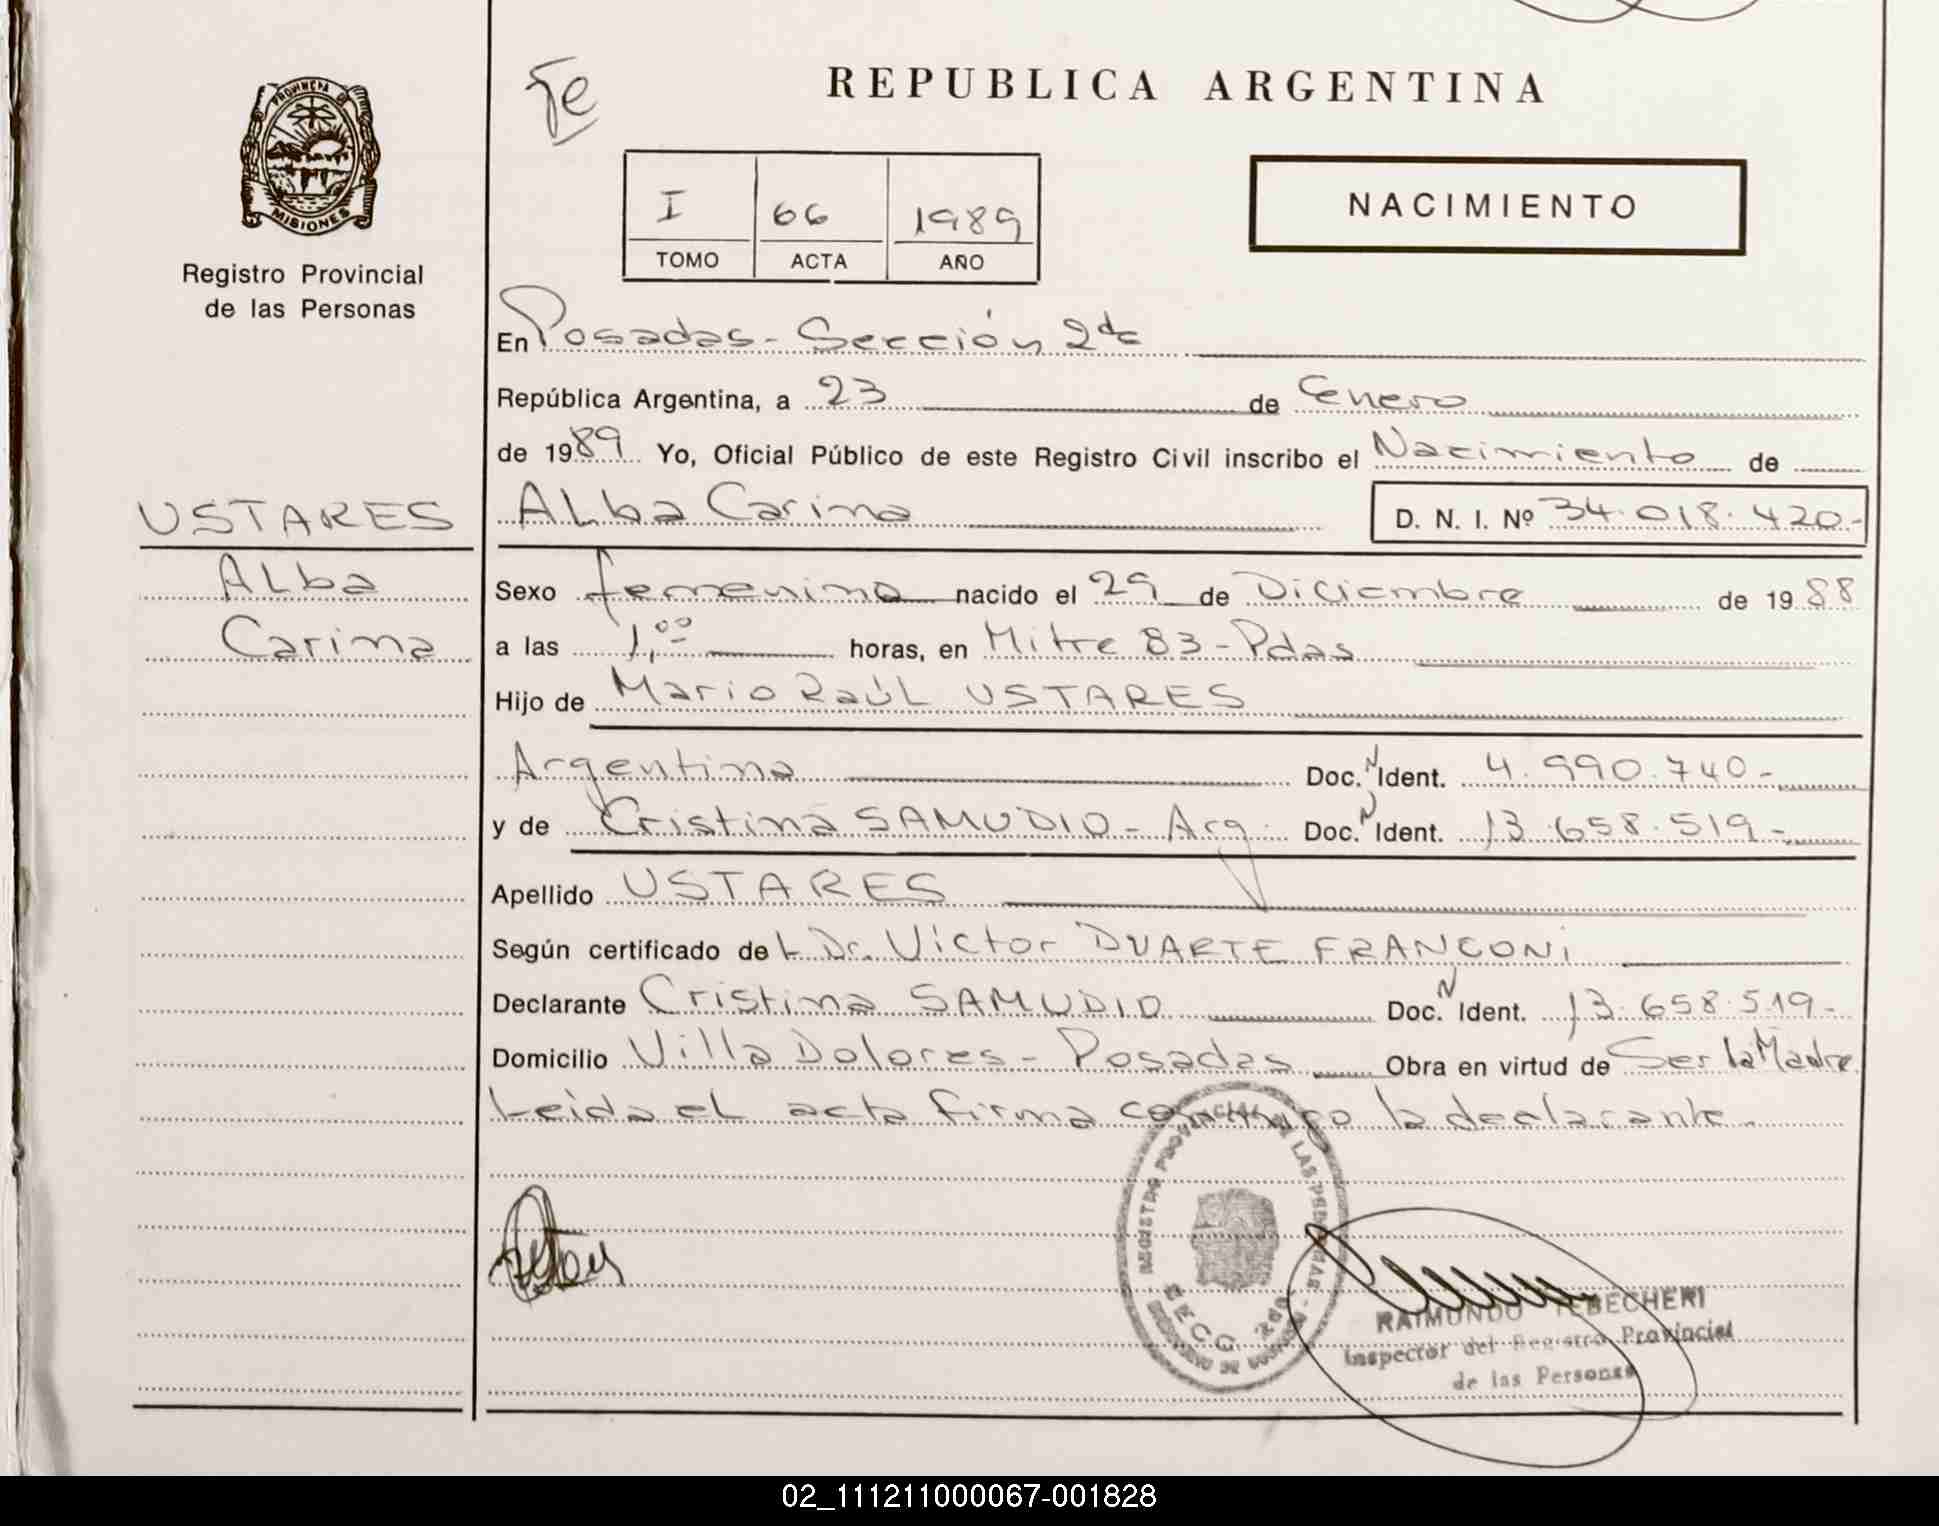 Fe
REPUBLICA ARGENTINA
PROVINCIA DE
MISIONES
Registro Provincial
de las Personas
I 66 1989
TOMO ACTA AÑO
NACIMIENTO
En Posadas - Sección 2da
República Argentina, a 23 de Enero
de 1989 Yo, Oficial Público de este Registro Civil inscribo el Nacimiento de
USTARES
Alba
Carina
Alba Carina D. N. I. Nº 34.018.420-
Sexo femenino nacido el 29 de Diciembre de 1988
a las 1,00 horas, en Mitre 83 - Pdas
Hijo de Mario Raúl USTARES
Argentino Doc. N Ident. 4.990.740-
y de Cristina SAMUDIO - Arg. Doc. N Ident. 13.658.519-
Apellido USTARES
Según certificado de L Dr. Victor DUARTE FRANCONI
Declarante Cristina SAMUDIO Doc. N Ident. 13.658.519-
Domicilio Villa Dolores - Posadas Obra en virtud de Ser la Madre
Leida el acta firma conmigo la declarante.
REGISTRO PROVINCIAL DE LAS PERSONAS
SECC. 2da
RAIMUNDO TEBECHERI
Inspector del Registro Provincial
de las Personas
02_111211000067-001828